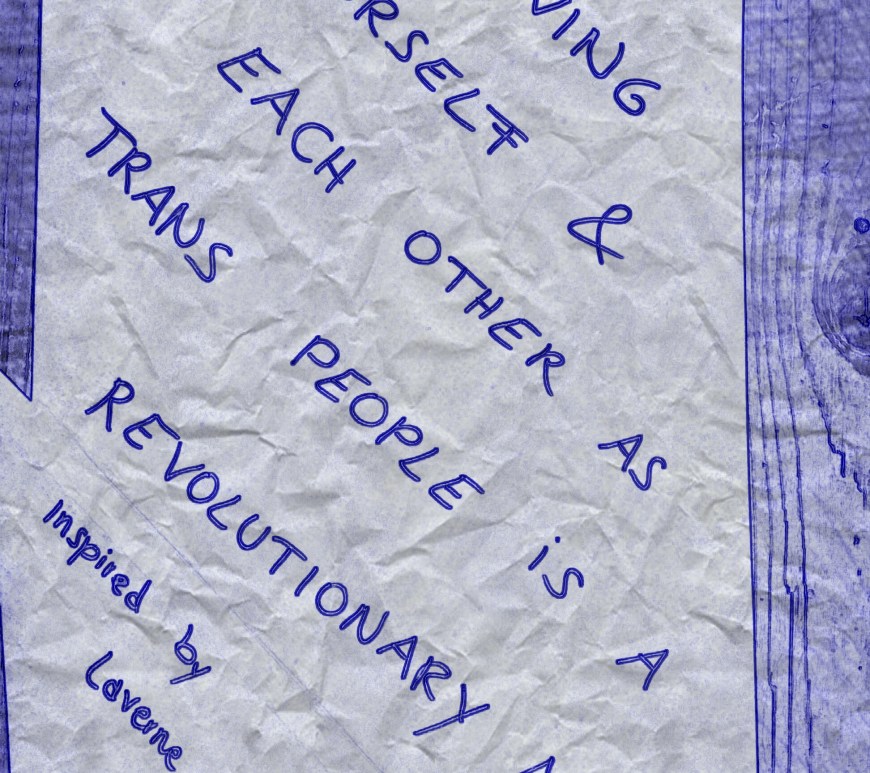 VING
RSELF &
EACH OTHER AS
TRANS PEOPLE iS A
REVOLUTIONARY
Inspired by
Laverne